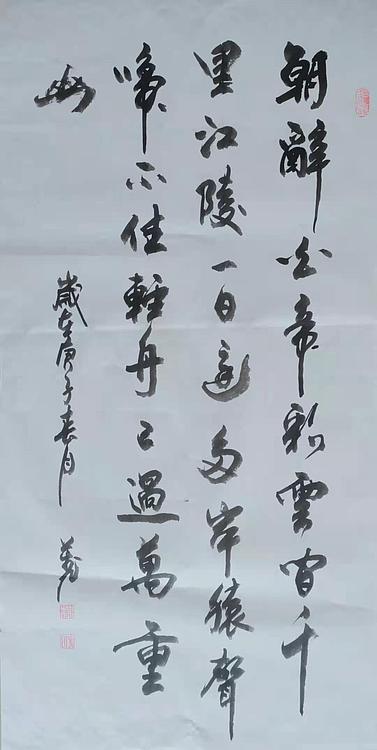 朝辭白帝彩雲間千
里江陵一日還兩岸猿聲
啼不住輕舟已過萬重
山
歲在庚子春月